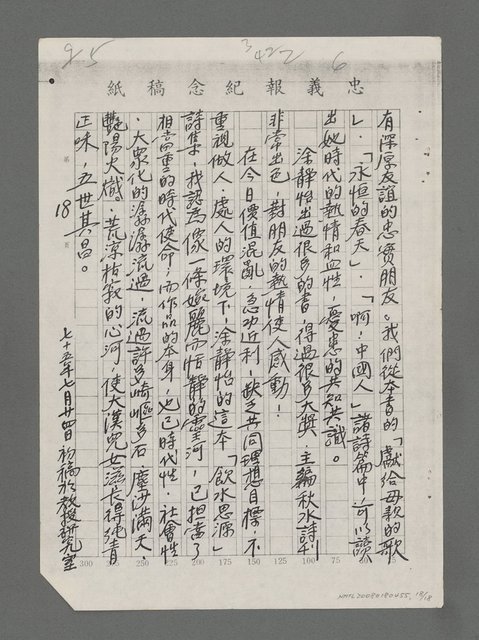 95
3
422
6
忠義報紀念稿紙
有深厚友誼的忠實朋友。我們從本書的「獻給母親的歌
」、「永恒的春天」、「啊！中國人」諸詩篇中，可以讀
出她時代的熱情和血性，憂患的共知共識。
涂靜怡出過很多的書，得過很多大獎，主編秋水詩刊
非常出色，對朋友的熱情使人感動！
在今日價值混亂，急功近利，缺乏共同理想目標，不
重視做人、處人的環境下，涂靜怡的這本「飲水思源」
詩集，我認為像一條婉麗而恬靜的星河，已担當了
相當重的時代使命，而作品的本身，也已時代性、社會性
、大眾化的潺潺流過，流過許多崎嶇多石、塵沙滿天、
艷陽火熾、荒凉枯寂的心河，使大漢兒女滋長得純青
正味，五世其昌。
七十五年七月廿四日初稿於教授研究室
第
18
頁
25
50
75
100
125
150
175
200
225
250
275
300
NMTL20080180455
18/18